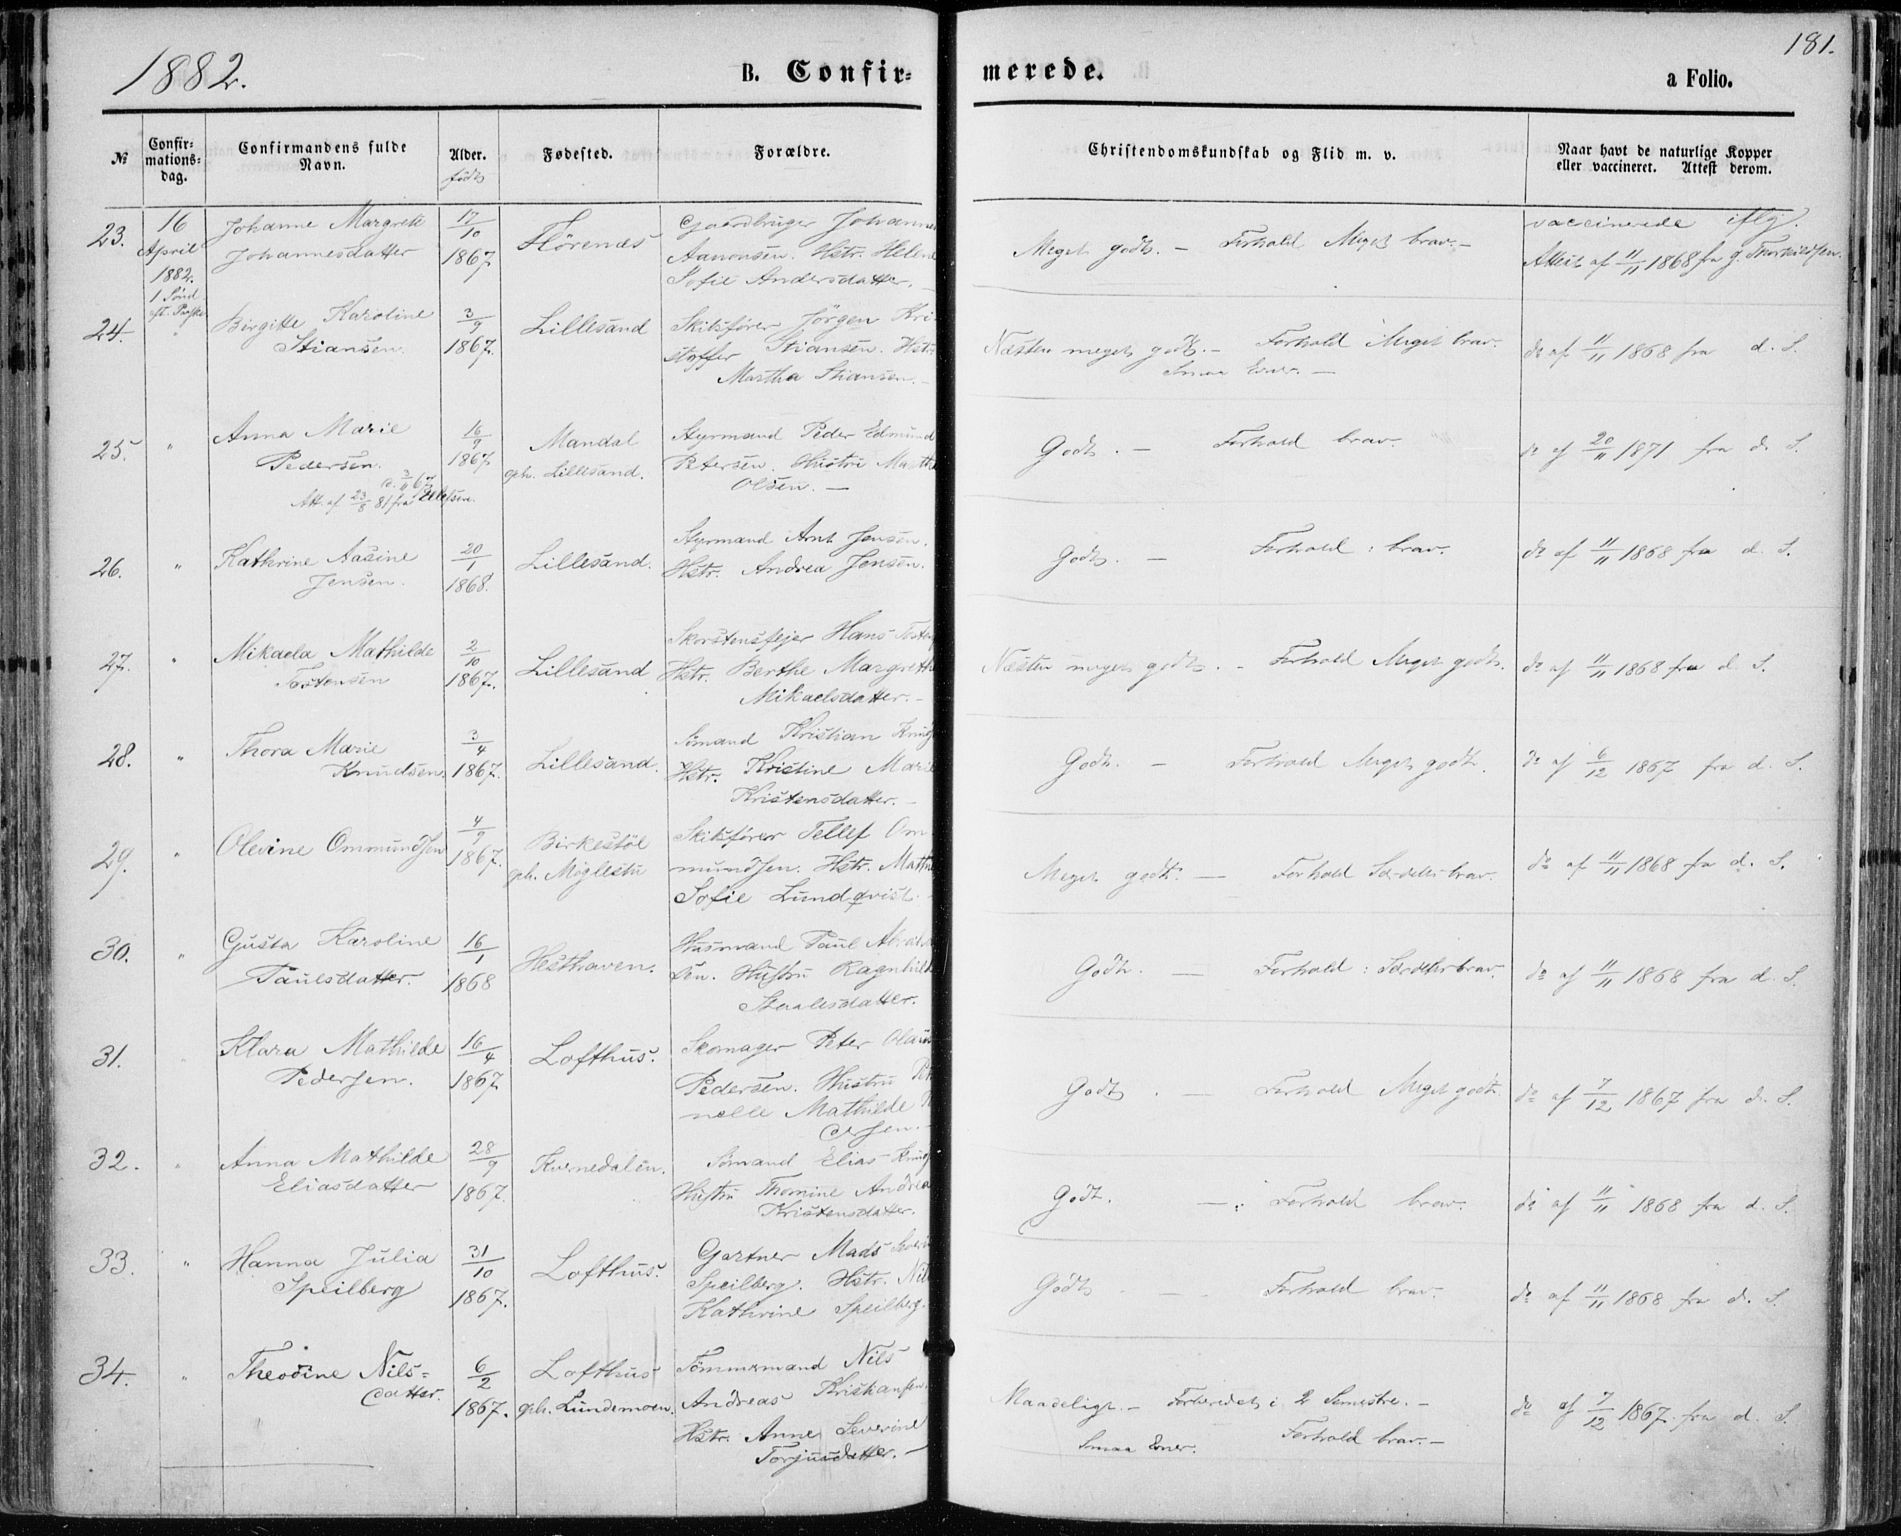 1882.
B. Confir-
merede.
181.
a Folio.
No
Confir-
mations-
dag.
Confirmandens fulde
Navn.
Alder.
født
Fødested.
Forældre.
Christendomskundskab og Flid m. v.
Naar havt de naturlige Kopper
eller vaccineret. Attest derom.
23.
16
April
1882.
1 Sønd
eft. Paaske
Johanne Margrete
Johannesdatter
17/10
1867
Hørenes
Gaardbruger Johannes
Aanonsen. Hstr. Helene
Sofie Andersdatter. —
Meget godt. — Forhold Meget brav. —
vaccinerede iflg.
Attest af 11/11 1868 fra G.
24.
"
Birgitte Karoline
Stiansen.
3/9
1867.
Lillesand
Skibsfører Jörgen Kri-
stoffer Stiansen. Hstr.
Martha Stiansen. —
Næsten meget godt. — Forhold Meget brav.
Smaa Evner. —
do af 11/11 1868 fra d. S.
25.
"
Anna Marie
Pedersen.
Att. af 23/8 81 fra
16/9
1867
Mandal
gph. Lillesand.
Styrmand Peder Edmund
Petersen. Hustru Marthe
Olsen. —
Godt. — Forhold brav.
do af 20/11 1871 fra d. S.
26.
"
Kathrine Aasine
Jensen.
20/1
1868.
Lillesand.
Styrmand Arnt Jensen.
Hstr. Andrea Jensen.
Godt. — Forhold : brav.
do af 11/11 1868 fra d. S.
27.
"
Mikaela Mathilde
Tostensen
2/10
1867.
Lillesand
Skorstensfejer Hans
Hstr. Berthe Margrethe
Mikaelsdatter. —
Næsten meget godt. — Forhold Meget godt.
do af 11/11 1868 fra d. S.
28.
"
Thora Marie
Knudsen.
3/4
1867.
Lillesand.
Sömand Kristian
Hstr. Kristine Marie
Kristensdatter. —
Godt. — Forhold Meget godt.
do af 6/12 1867 fra d. S.
29.
"
Olevine Ommundsen
4/9
1867.
Birkestöl
gph. Möglestu
Skibsförer Tellef Om-
mundsen. Hstr.
Sofie Lundqvist. —
Meget godt. — Forhold Særdeles brav.
do af 11/11 1868 fra d. S.
30.
"
Gusta Karoline
Paulsdatter.
16/1
1868
Hesthaven.
Husmand Paul
sen. Hustru Ragnhild
Staalesdatter.
Godt. — Forhold : Særdeles brav.
do af 11/11 1868 fra d. S.
31.
Klara Mathilde
Pedersen.
16/4
1867
Lofthus.
Skomager Peter
Pedersen. Hustru Pet
nelle Mathilde
ersen. —
Godt. — Forhold Meget godt.
do af 7/12 1867 fra d. S.
32.
"
Anna Mathilde
Eliasdatter
28/9
1867.
Kvernedalen.
Sömand Elias
Hustru Thomine Andrea
Kristensdatter.
Godt. — : Forhold brav.
do af 11/11 1868 fra d. S.
33.
"
Hanna Julia
Speilberg
31/10
1867.
Lofthus.
Gartner Mads
Speilberg. Hstr.
Kathrine Speilberg.
Godt. — Forhold brav.
do af 11/11 1868 fra d. S.
34.
"
Theodine Nils-
datter.
6/2
1867.
Lofthus
gph. Lundemoen.
Tömmermand Nils
Andreas Kristiansen.
Hstr. Anne Severine
Torjusdatter. —
Maadeligt. — Forberedet i 2 Semestre. —
Smaa Evner. Forhold brav. —
do af 7/12 1867 fra d. S.